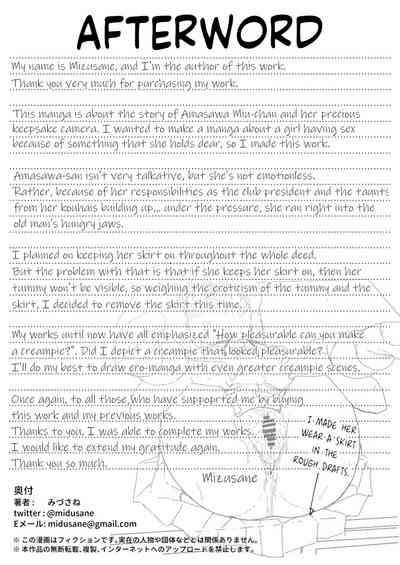 AFTERWORD
My name is Mizusane, and I'm the author of this work.
Thank you very much for purchasing my work.
This manga is about the story of Amasawa Miu-chan and her precious
keepsake camera. I wanted to make a manga about a girl having sex
because of something that she holds dear, so I made this work.
Amasawa-san isn't very talkative, but she's not emotionless.
Rather, because of her responsibilities as the club president and the taunts
from her kouhais building up... under the pressure, she ran right into the
old man's hungry jaws.
I planned on keeping her skirt on throughout the whole deed.
But the problem with that is that if she keeps her skirt on, then her
tummy won't be visible, so weighing the eroticism of the tummy and the
skirt, I decided to remove the skirt this time.
My works until now have all emphasized "How pleasurable can you make
a creampie?". Did I depict a creampie that looked pleasurable?
I'll do my best to draw ero-manga with even greater creampie scenes.
Once again, to all those who have suppoprted me by buying
this work and my previous works.
Thanks to you, I was able to complete my works.
I would like to extend my gratitude again.
Thank you so much.
Mizusane
I MADE HER
WEAR A SKIRT
IN THE
ROUGH DRAFTS.
奥付
著者： みづさね
twitter : @midusane
Eメール: midusane@gmail.com
※ この漫画はフィクションです。実在の人物や団体などとは関係ありません。
※ 本作品の無断転載、複製、インターネットへのアップロードを禁止します。